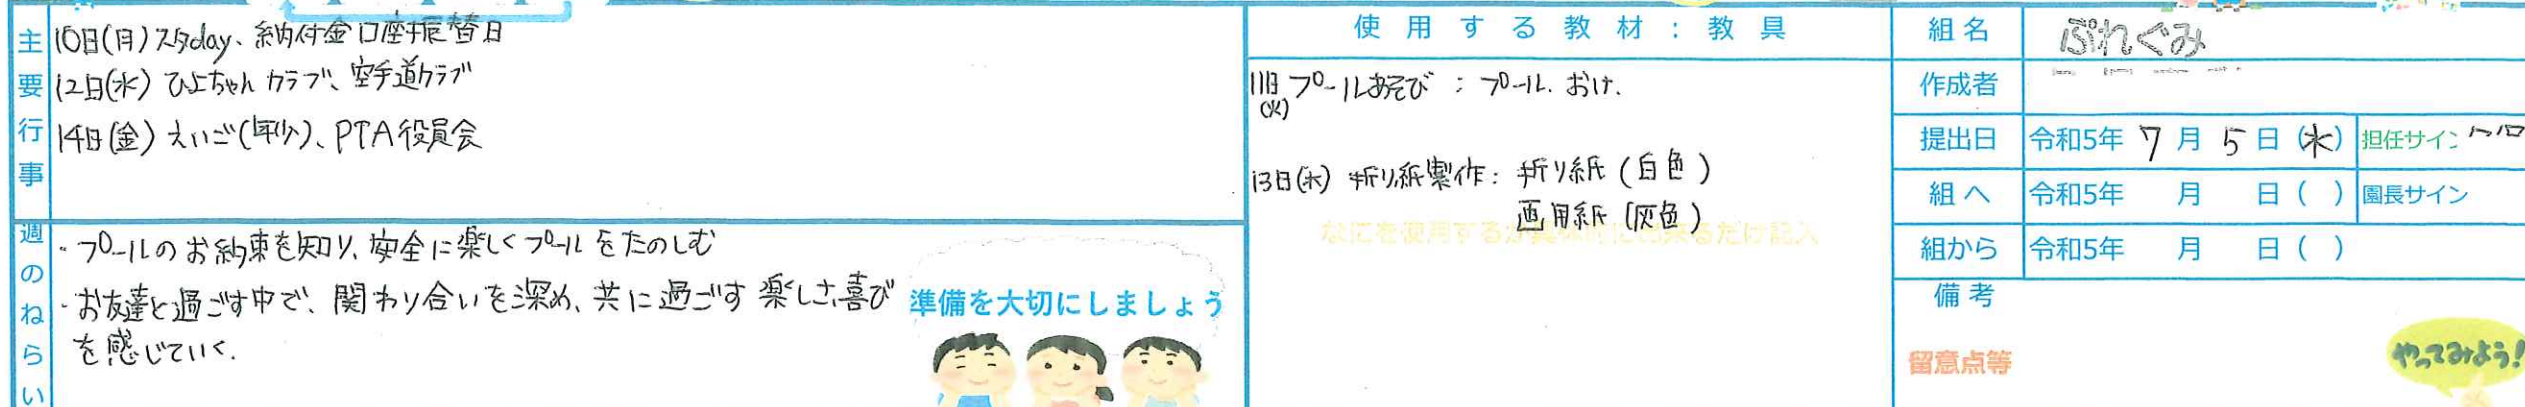 主要行事
10日(月)スタday、納付金口座振替日
12日(水)ひよちゃんクラブ、空手道クラブ
14日(金)えいご(年少)、PTA役員会
週のねらい
・プールのお約束を知り、安全に楽しくプールをたのしむ
・お友達と過ごす中で、関わり合いを深め、共に過ごす楽しさ、喜び
を感じていく.
準備を大切にしましょう
使用する教材：教具
11日(火)プールあそび：プール.おけ.
13日(木)折り紙製作：折り紙(白色)
画用紙(灰色)
なにを使用するか具体的に出来るだけ記入
組名 ぷれぐみ
作成者
提出日 令和5年 7月 5日(水) 担任サイン
組へ 令和5年 月 日( ) 園長サイン
組から 令和5年 月 日( )
備考
留意点等
やってみよう!